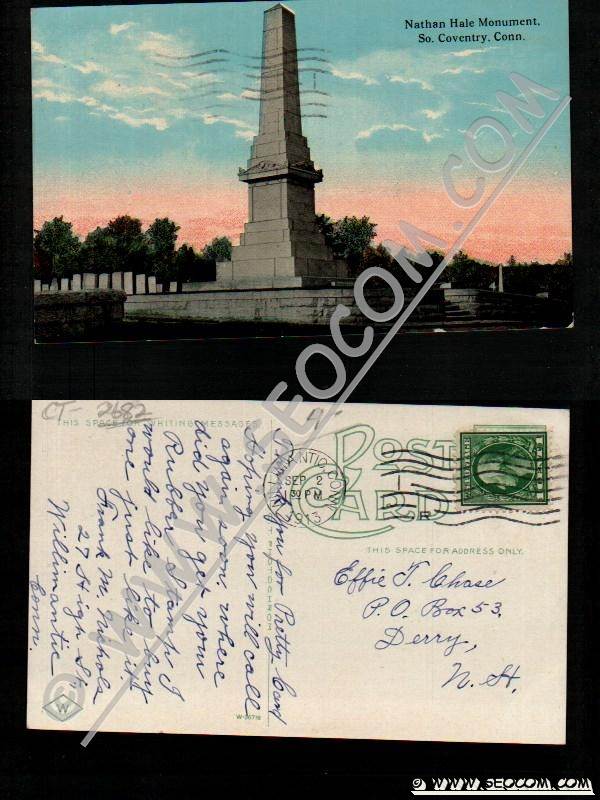 Nathan Hale Monument,
So. Coventry, Conn.
© WWW.SEOCOM.COM
CT- 2682
THIS SPACE FOR WRITING MESSAGES
POST
CARD
SEP 2
30 PM
1913
THIS SPACE FOR ADDRESS ONLY.
Effie T. Chase
P.O. Box 53.
Derry,
N. H.
Thank you for Pretty Card
Hoping you will call
again soon where
did you get your
Rubber Stamp I
would like to buy
one just like it.
Frank M. Nichols
27 High St.
Willimantic
Conn.
W
W-36716
© WWW.SEOCOM.COM